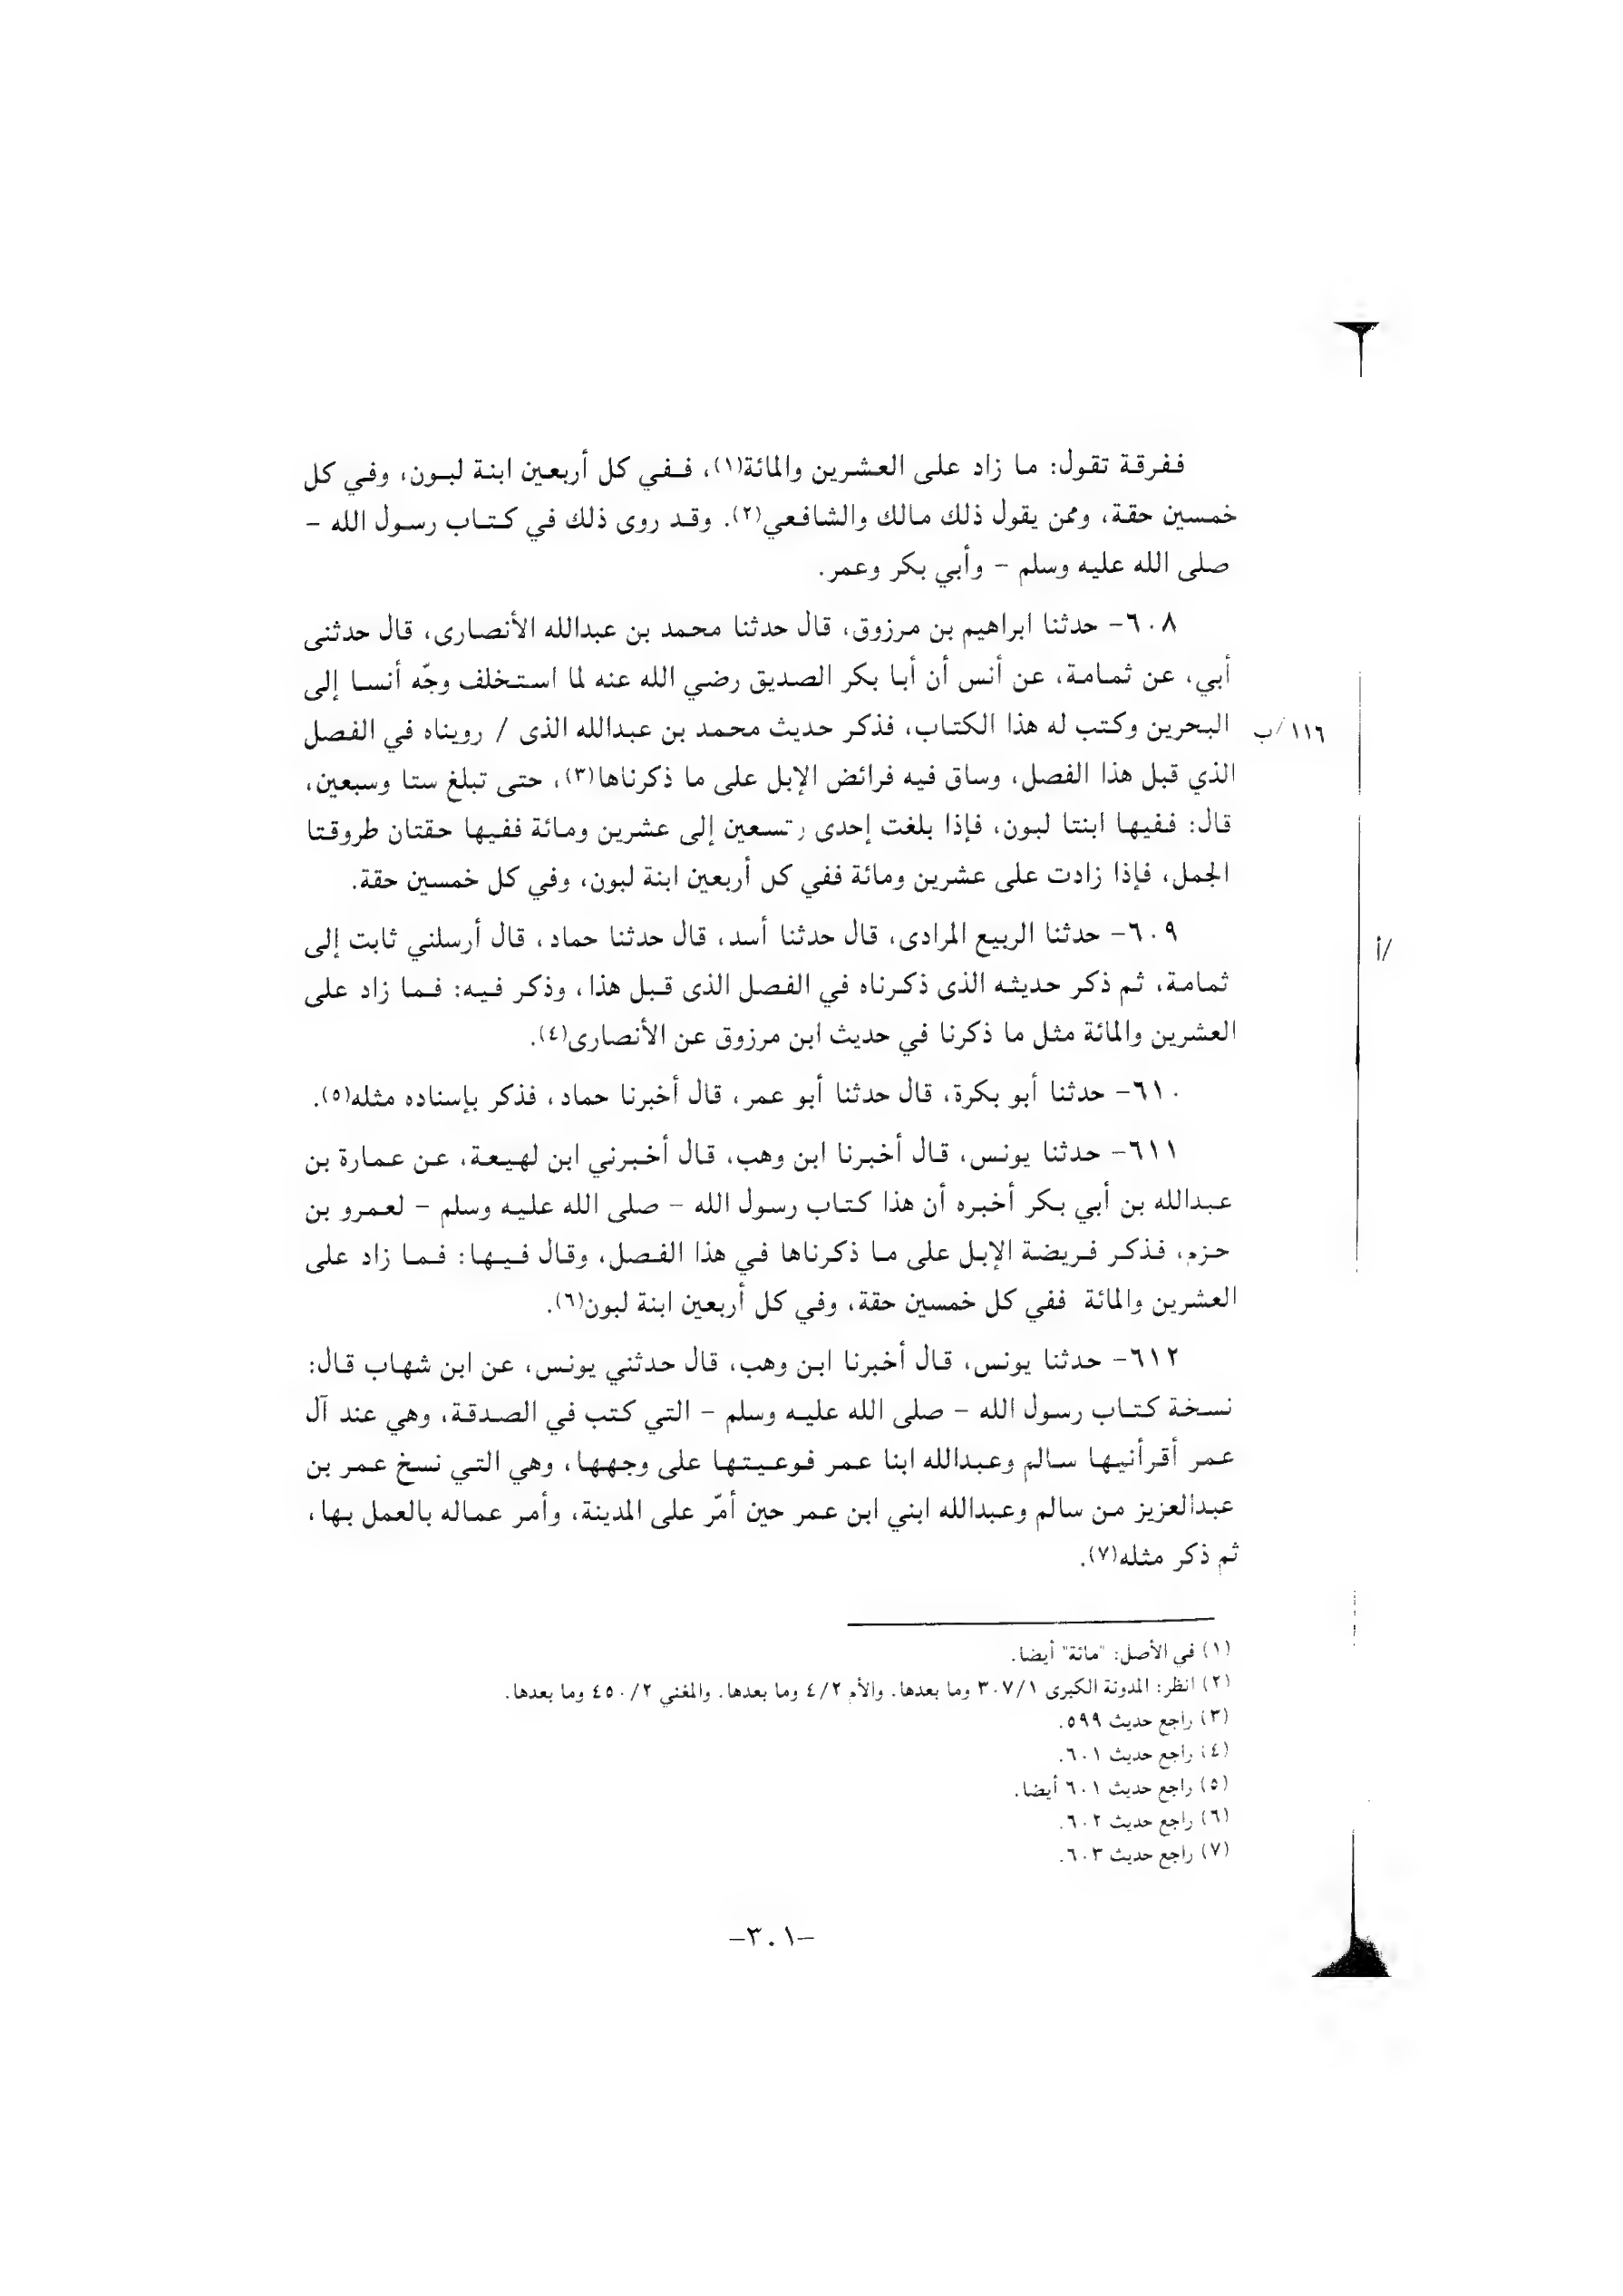 ففرقة تقول: ما زاد على العشرين والمائة(١)، ففي كل أربعين ابنة لبون، وفي كل
خمسين حقة، وممن يقول ذلك مالك والشافعي(٢). وقد روى ذلك في كتاب رسول الله –
صلى الله عليه وسلم – وأبي بكر وعمر.
٦٠٨– حدثنا ابراهيم بن مرزوق، قال حدثنا محمد بن عبدالله الأنصارى، قال حدثنى
أبي، عن ثمامة، عن أنس أن أبا بكر الصديق رضي الله عنه لما استخلف وجّه أنسا إلى
البحرين وكتب له هذا الكتاب، فذكر حديث محمد بن عبدالله الذى / رويناه في الفصل
١١٦/ب
الذي قبل هذا الفصل، وساق فيه فرائض الإبل على ما ذكرناها(٣)، حتى تبلغ ستا وسبعين،
قال: ففيها ابنتا لبون، فإذا بلغت إحدى وتسعين إلى عشرين ومائة ففيها حقتان طروقتا
الجمل، فإذا زادت على عشرين ومائة ففي كل أربعين ابنة لبون، وفي كل خمسين حقة.
٦٠٩– حدثنا الربيع المرادى، قال حدثنا أسد، قال حدثنا حماد، قال أرسلني ثابت إلى
/أ
ثمامة، ثم ذكر حديثه الذى ذكرناه في الفصل الذى قبل هذا، وذكر فيه: فما زاد على
العشرين والمائة مثل ما ذكرنا في حديث ابن مرزوق عن الأنصارى(٤).
٦١٠– حدثنا أبو بكرة، قال حدثنا أبو عمر، قال أخبرنا حماد، فذكر بإسناده مثله(٥).
٦١١– حدثنا يونس، قال أخبرنا ابن وهب، قال أخبرني ابن لهيعة، عن عمارة بن
عبدالله بن أبي بكر أخبره أن هذا كتاب رسول الله – صلى الله عليه وسلم – لعمرو بن
حزم، فذكر فريضة الإبل على ما ذكرناها في هذا الفصل، وقال فيها: فما زاد على
العشرين والمائة ففي كل خمسين حقة، وفي كل أربعين ابنة لبون(٦).
٦١٢– حدثنا يونس، قال أخبرنا ابن وهب، قال حدثني يونس، عن ابن شهاب قال:
نسخة كتاب رسول الله – صلى الله عليه وسلم – التي كتب في الصدقة، وهي عند آل
عمر أقرأنيها سالم وعبدالله ابنا عمر فوعيتها على وجهها، وهي التي نسخ عمر بن
عبدالعزيز من سالم وعبدالله ابني ابن عمر حين أمّر على المدينة، وأمر عماله بالعمل بها،
ثم ذكر مثله(٧).
(١) في الأصل: "مائة" أيضا.
(٢) انظر: المدونة الكبرى ٣٠٧/١ وما بعدها. والأم ٤/٢ وما بعدها. والمغني ٤٥٠/٢ وما بعدها.
(٣) راجع حديث ٥٩٩.
(٤) راجع حديث ٦٠١.
(٥) راجع حديث ٦٠١ أيضا.
(٦) راجع حديث ٦٠٢.
(٧) راجع حديث ٦٠٣.
–٣٠١–